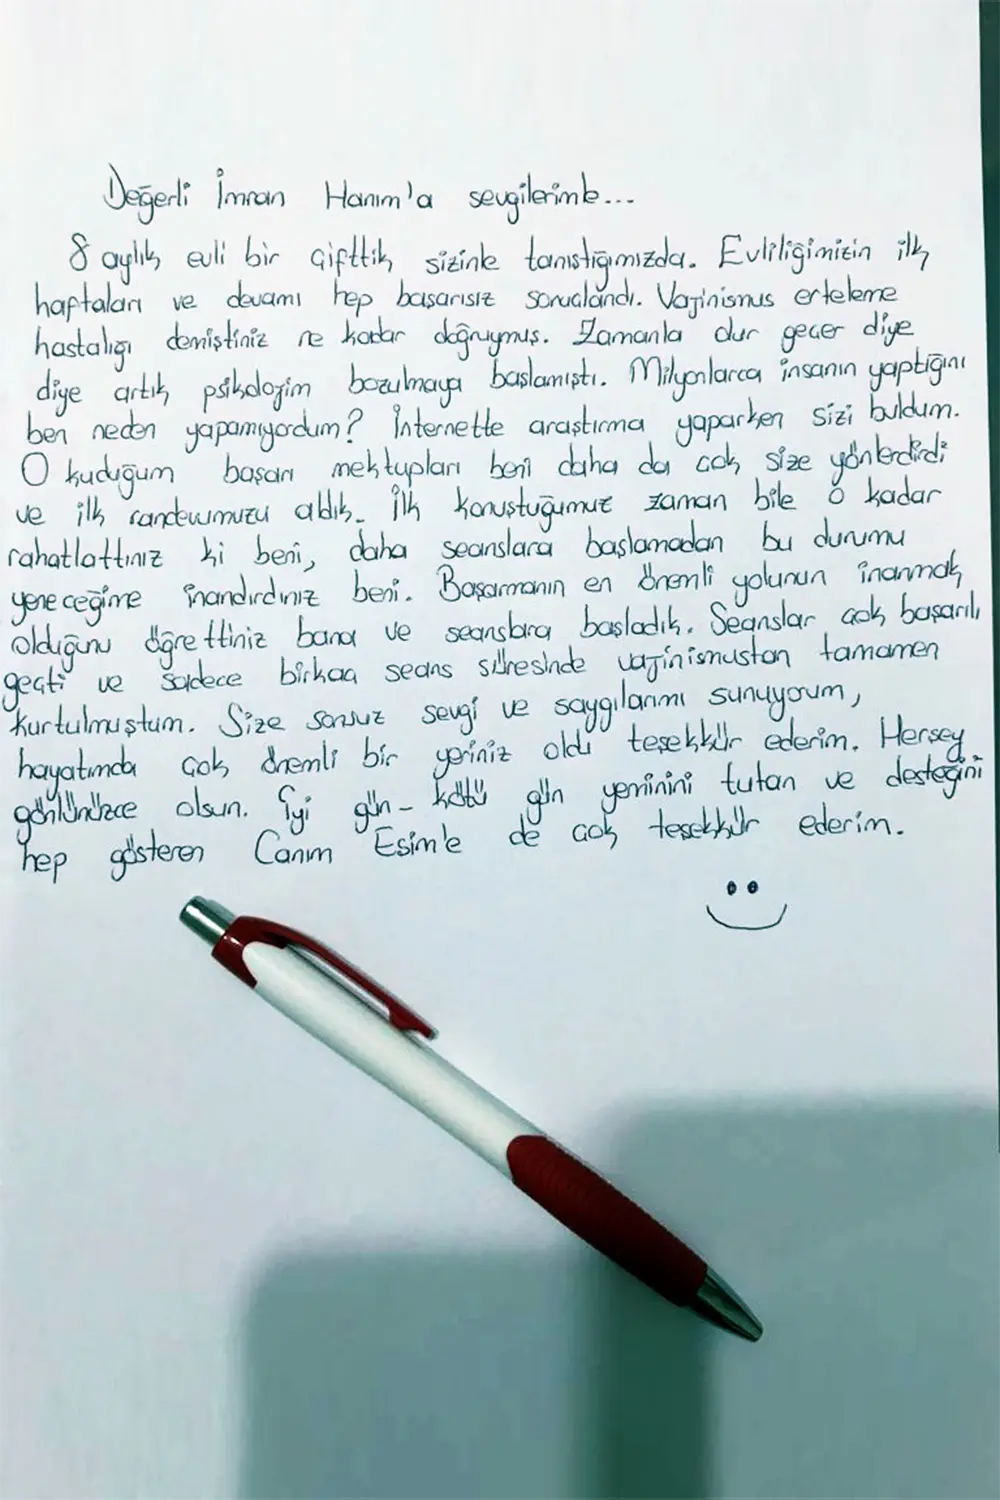 Değerli İmran Hanım'a sevgilerimle...
8 aylık evli bir çifttik sizinle tanıştığımızda. Evliliğimizin ilk
haftaları ve devamı hep başarısız sonuçlandı. Vajinismus erteleme
hastalığı demiştiniz ne kadar doğruymuş. Zamanla olur geçer diye
diye artık psikolojim bozulmaya başlamıştı. Milyonlarca insanın yaptığını
ben neden yapamıyordum? İnternette araştırma yaparken sizi buldum.
O kuduğum başarı mektupları beni daha da çok size yönlendirdi
ve ilk randevumuzu aldık. İlk konuştuğumuz zaman bile o kadar
rahatlattınız ki beni, daha seanslara başlamadan bu durumu
yeneceğime inandırdınız beni. Başarmanın en önemli yolunun inanmak
olduğunu öğrettiniz bana ve seanslara başladık. Seanslar çok başarılı
geçti ve sadece birkaç seans süresinde vajinismustan tamamen
kurtulmuştum. Size sonsuz sevgi ve saygılarımı sunuyorum,
hayatımda çok önemli bir yeriniz oldu teşekkür ederim. Herşey
gönlünüzce olsun. İyi gün - kötü gün yeminini tutan ve desteğini
hep gösteren Canım Eşim'e de çok teşekkür ederim.